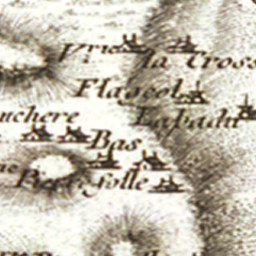 Vrie
la Cross
Flageol
Labadit
uchere
Bas
Pierrefolle